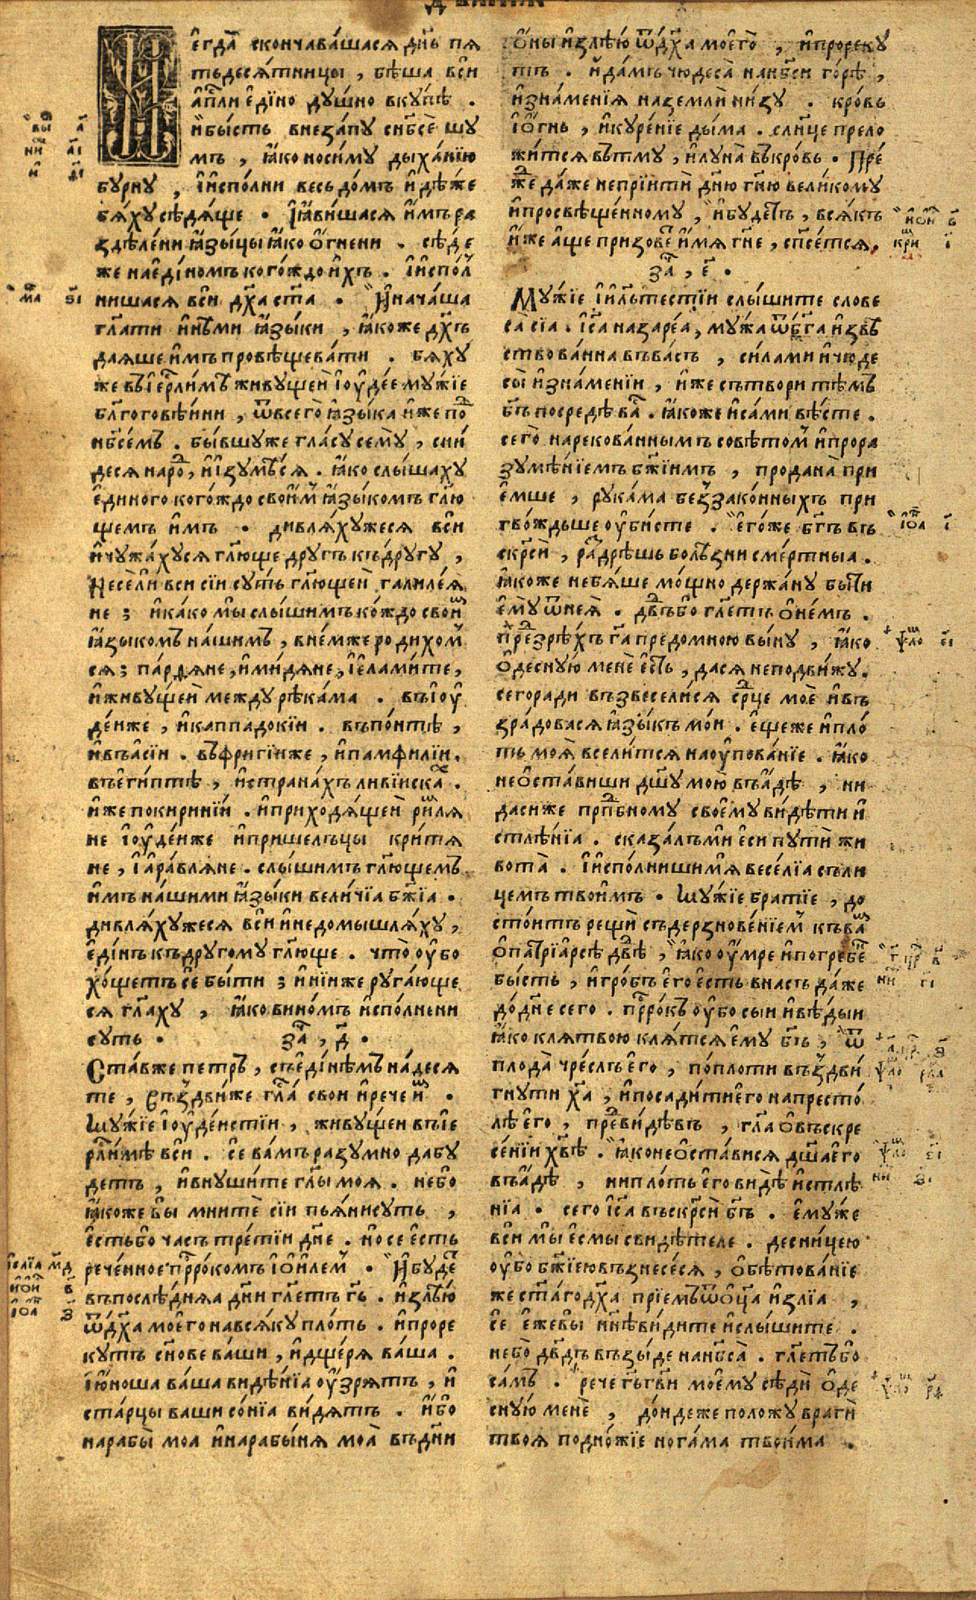 Дѣанїа
И
єгда̀ скончава́шася дн҃ь пя
тьдеся́тницы , бѣ́ша вси̂
а҆пⷭ҇ли є҆ди́но ду́шно вку́пѣ .
и҆ бы́сть внеза́пу с нб҃сѐ шу
мъ , ꙗ҆́ко носи́му дыха́нїю
бурну , и҆ и҆спо́лни весь до́мъ и҆дѣ́же
бя́ху сѣдя́ще . І҆ ꙗ҆ви́шася и҆̀мъ ра
здѣле́ни ꙗ҆зы́цы ꙗ҆́ко о҆́гнени . сѣ́де
же на є҆ди́номъ кого́ждо и҆́хъ . І҆ и҆спо́л
нишася вси̂ дх҃а ст҃а . И҆ нача́ша
гл҃ати и҆ны́ми ꙗ҆зы́ки , ꙗ҆́коже дх҃ъ
дая́ше и҆̀мъ провѣщева́ти . бя́ху
же въ і҆єрⷭ҇ли́мѣ живу́щеи і҆ꙋдє́є му́жїе
бл҃гоговѣ́йни , ѿ всего̀ ꙗ҆зы́ка и҆́же поⷣ
нб҃се́мъ . бы́вшу же гла́су сему̀ , сни́
деся наро́ⷣ , и҆ и҆зумѣ́ся . ꙗ҆́ко слы́шаху
є҆ди́ного кого́ждо свои҆́мъ ꙗ҆зы́комъ гл҃ю
щемъ и҆̀мъ . дивля́хужеся вси̂
и҆ чужа́хуся гл҃юще другъ къ дру́гу ,
Не се́ли вси сїи суть гл҃ющеи галиле́я
не ; и҆ ка́ко мы̀ слы́шимъ ко́ждо свои҆
ꙗ҆зы́комъ на́шимъ , в не́мже роди́хом
ся ; па́рдяне , и҆ ми́дяне , і҆ є҆лами́те ,
и҆ живу́щеи между рѣка́ма . въ і҆ꙋ
де́и же , и҆ каппадокі́и . въ по́нтѣ ,
и҆ въ а҆сі́и . въ фригі́и же , и҆ памфилі́и .
въ є҆ги́птѣ , и҆ страна́хъ ливі́йскаⷯ
и҆́же по кирині́и . и҆ приходя́щеи ри́мля
не і҆ꙋде́и же и҆ прише́льцы кри́тя
не , і҆ а҆ра́вляне . слы́шимъ гл҃ющемъ
и҆̀мъ на́шими ꙗ҆зы́ки вели́чїа бж҃їа .
дивля́хужеся вси̂ и҆ недомышля́ху ,
є҆ди́нъ къ друго́му гл҃юще . что̀ у҆бо
хо́щетъ се бы́ти ; и҆ни́и же руга́юще
ся гл҃аху , ꙗ҆́ко вино́мъ и҆спо́лнени
суть . за҃ , г҃ .
Ста́вже петръ , съ є҆ди́нѣмъ на́деся
те , въздви́же гл҃а свои и҆ рече и҆̀мъ .
Му́жїе і҆ꙋде́йстїи , живу́щеи въ і҆є
рⷭ҇ли́мѣ вси . се ва́мъ разу́мно да бу
детъ , и҆ внуши́те гл҃ы моя̀ . не бо
ꙗ҆́коже вы̀ мни́тѐ сїи пья́ни суть ,
є҆́сть бо ча́съ тре́тїи дн҃е . но се є҆́сть
рече́нное прⷪ҇ро́комъ і҆о́илемъ . И҆ бу́деⷮ
въ послѣ́дняа дн҃и гл҃етъ гⷭ҇ь . и҆злѣю
ѿ дх҃а моего̀ на вся́ку пло́ть . и҆ проре
ку́тъ сн҃ове ва́ши , и҆ дще́ря ва́ша .
і҆ ю҆́ноша ва́ша видѣ́нїа у҆́зрятъ , и҆
ста́рцы ваши со́нїа ви́дятъ . и҆́бо
на рабы̀ моа и҆ на рабы́ня моа̀ въ дн҃и
о҆́ны и҆злѣ́ю ѿ дх҃а моего̀ , и҆ прореку
тъ . и҆ да́мъ чюдеса̀ на нб҃си го́рѣ ,
и҆ зна́менїя на землѝ ни́зу . кро́вь
і҆ о҆́гнь , и҆ куре́нїе ды́ма . сл҃нце прело
жи́тся въ тму , и҆ луна̀ въ кро́вь . Пре́
же да́же не прїити̂ дн҃ю гⷭ҇ню вели́кому
и҆ просвѣще́нному , и҆ бу́детъ , вся́къ
и҆́же а҆́ще призове́ⷮ и҆́мя гⷭ҇не , сп҃се́тся .
за҃ , є҃ .
Му́жїе і҆и҃льтестїи слы́шите слове
са̀ сїа . і҆с҃а назаре́а , му́жа ѿ бг҃а и҆звѣ́
ствова́нна въ ва́съ , си́лами и҆ чюде
сы̀ и҆ зна́менїи , и҆́же сътвори тѣ́мъ
бг҃ъ посредѣ ва́ⷭ . ꙗ҆́коже и҆ са́ми вѣ́сте .
сего̀ нарекова́ннымъ совѣ́томъ и҆ прора
зумѣ́нїемъ бж҃їимъ , про́дана при
є҆́мше , рука́ма без̾зако́нныхъ при
гво́ждьше у҆би́сте . є҆го́же бг҃ъ въ
скр҃си̂ , раздрѣ́шь болѣ́зни сме́ртныа .
ꙗ҆́коже не бя́ше мо́щно держа́ну бы́ти
є҆му̀ ѿ нея̀ . дв҃дъ бо гл҃етъ о҆ не́мъ .
пре́зрѣ́хъ гⷭ҇а предо мно́ю вы́ну , ꙗ҆́ко
о҆десну́ю менѐ є҆́сть , да ся не подви́жу .
сего ради възвесели́ся сꙋⷣце моѐ и҆ въ
зра́довася ꙗ҆зы́къ мо́и . є҆ще́же и҆ пло́
ть моя̀ всели́тся на у҆пова́нїе . ꙗ҆́ко
не о҆ста́виши дш҃у мою̀ въ а҆́дѣ , ни
да́си же прпⷣбному своє́му ви́дѣти и҆
стлѣ́нїа . сказа́лъ ми є҆си̂ пути̂ жи
вота̀ . І҆ и҆спо́лниши мя весе́лїа съ ли
цемъ твои́мъ . Му́жїе бра́тїе , до
сто́итъ рещи̂ съ дерзнове́нїемъ къ ваⷨ
о҆ патрїа́рсѣ дв҃дѣ , ꙗ҆́ко у҆́мре и҆ погребе́ⷩ
бы́сть , и҆ гро́бъ є҆го̀ є҆сть в на́съ да́же
до дн҃е сего . прⷪ҇ро́къ у҆бо сыи и҆ вѣ́дыи
ꙗ҆́ко кля́твою кля́тся є҆му бг҃ъ , ѿ
плода̀ чре́слъ є҆го̀ , по пло́ти въздви́
гнути хⷭ҇а , и҆ посади́ти є҆го на престо́
лѣ є҆го , предви́дѣвъ , гл҃а о҆ въскре
се́нїи хв҃ѣ . ꙗ҆́ко не о҆ста́вися дш҃а є҆го
въ а҆́дѣ , ни пло́ть є҆го ви́дѣ и҆стлѣ́
нїа . сего і҆с҃а въскр҃си̂ бг҃ъ . є҆му́же
вси̂ мы̀ є҆смы̀ свидѣ́теле . десни́цею
у҆́бо бж҃їею възнесе́ся , о҆бѣтова́нїе
же ст҃а́го дх҃а прїе́мъ ѿ о҆ц҃а и҆злїа̀ ,
се є҆же вы̀ ны́нѣ ви́дите и҆ слы́шите .
не бо̀ дв҃дъ възы́де на нб҃са̀ . гл҃етъ бо
са́мъ . рече гⷭ҇ь гⷭ҇ви мое́му сѣди̂ о҆де
сну́ю менѐ , до́ндеже положу враги̂
твоя̀ подно́жїе нога́ма твои́ма .